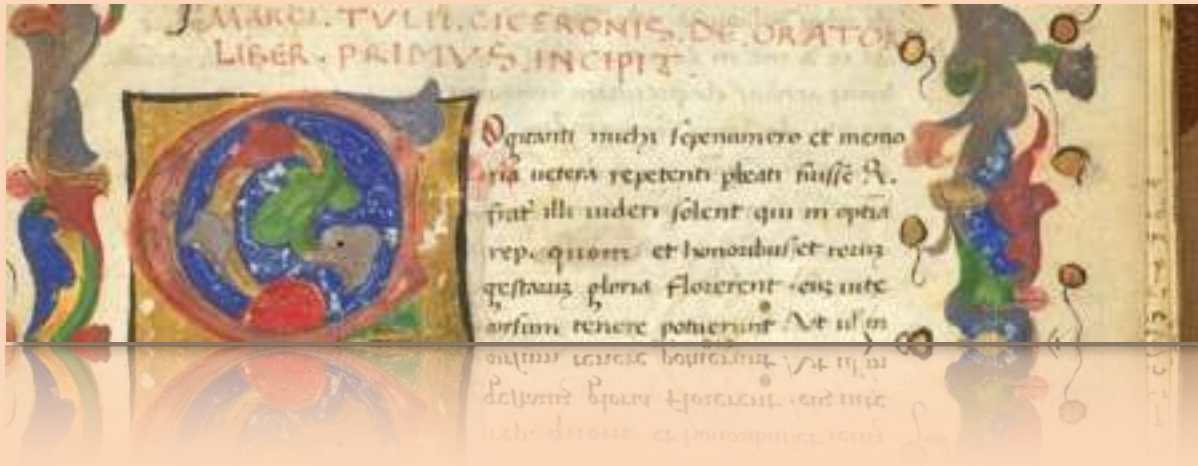 MARCI. TVLII. CICERONIS. DE. ORATOR
LIBER. PRIMVS. INCIPIT.
Ogitanti michi sepenumero et memo
ria uetera repetenti pbeati fuisse Q.
frat illi uideri solent qui in optia
rep. quom et honoribus et reruz
gestaruz gloria florerent. euz uite
cursum tenere potuerunt Vt ul in